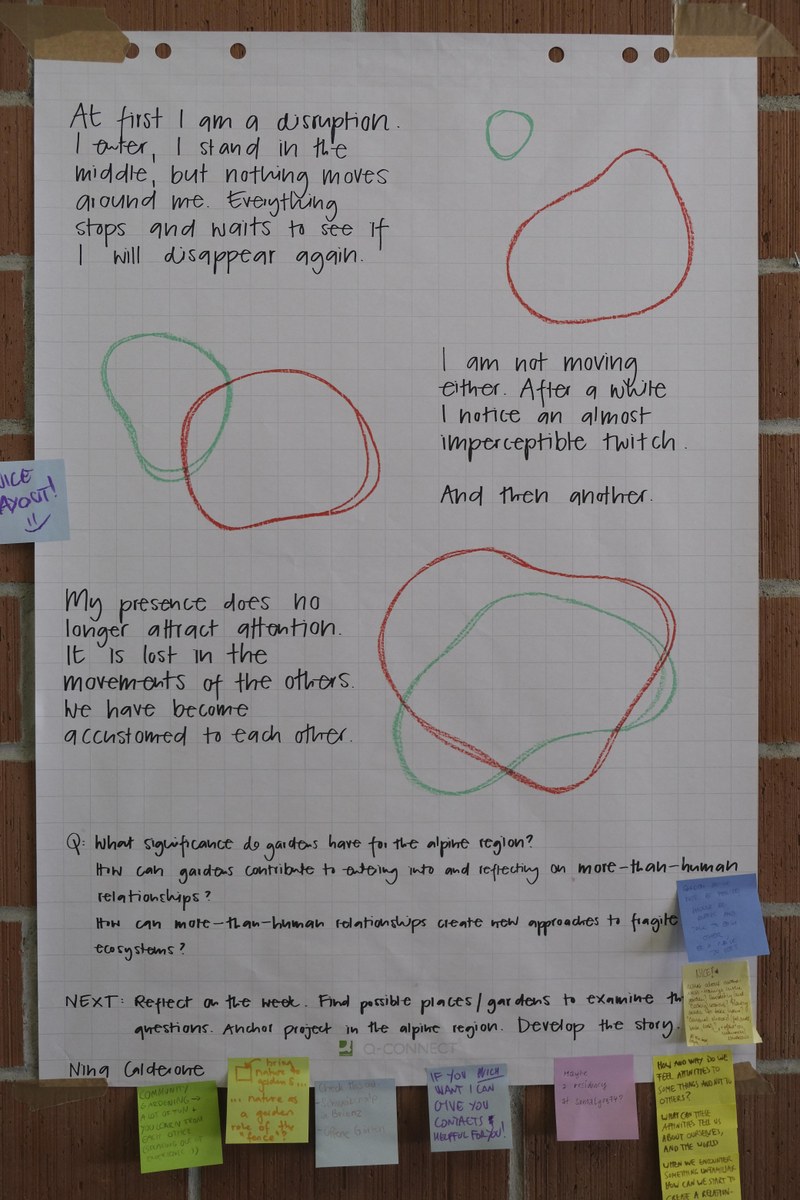 At first I am a disruption.
I enter, I stand in the
middle, but nothing moves
around me. Everything
stops and waits to see if
I will disappear again.
I am not moving
either. After a while
I notice an almost
imperceptible twitch.
And then another.
NICE
LAYOUT!
My presence does no
longer attract attention.
It is lost in the
movements of the others.
We have become
accustomed to each other.
Q: What significance do gardens have for the alpine region?
How can gardens contribute to entering into and reflecting on more-than-human
relationships?
How can more-than-human relationships create new approaches to fragile
ecosystems?
NEXT: Reflect on the week. Find possible places/gardens to examine th
questions. Anchor project in the alpine region. Develop the story.
Q-CONNECT
Nina Calderone
NICE!
COMMUNITY
GARDENING →
A LOT OF FUN &
YOU LEARN FROM
EACH OTHER
bring
nature to
gardens...
... nature as
a garden
role of the
"fence"!
IF YOU MICH
WANT I CAN
GIVE YOU
CONTACTS
HELPFUL FOR YOU!
Maybe
a residency
HOW AND WHY DO WE
FEEL AFFINITIES TO
SOME THINGS AND NOT TO
OTHERS?
WHAT CAN THESE
AFFINITIES TELL US
ABOUT OURSELVES,
AND THE WORLD
WHEN WE ENCOUNTER
SOMETHING UNFAMILIAR
HOW CAN WE START TO
CREATE A RELATION-